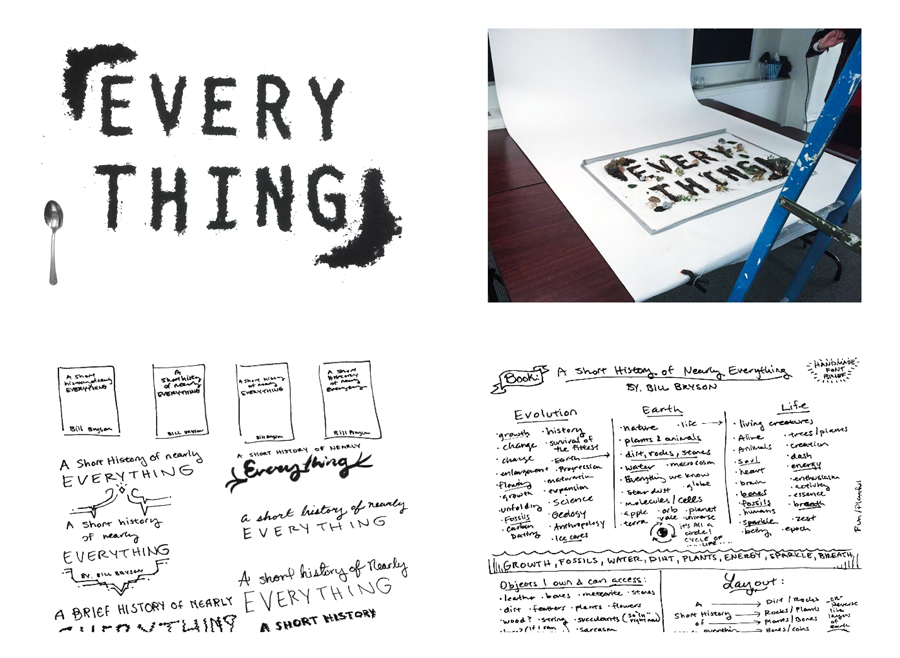 EVERY
THING
EVERY
THING
A Short
history of nearly
EVERYTHING
Bill Bryson
A
Short history
of nearly
EVERYTHING
BILL BRYSON
A Short history
of nearly
EVERYTHING
Bill Bryson
A Short
HISTORY
of nearly
Everything
Bill Bryson
A Short History of nearly
EVERYTHING
A Short history
of nearly
EVERYTHING
BY. BILL BRYSON
A BRIEF HISTORY OF NEARLY
EVERYTHING
A SHORT HISTORY OF NEARLY
Everything
a short history of nearly
EVERYTHING
A short history of Nearly
EVERYTHING
A SHORT HISTORY
Book: A Short History of Nearly Everything
BY. BILL BRYSON
HANDMADE
FONT
Evolution
·growth ·history
·change ·survival of
the fittest
·charge ·Earth
·enlargement ·Progression
·flowing ·maturation
·growth ·expansion
·unfolding ·Science
·Fossils ·Geology
·Carbon ·Anthropology
Dating ·Ice cores
Earth
·nature ·life
·plants & animals
·dirt, rocks, stones
·water ·macrocosm
·Everything we know
·Star dust ·globe
·molecules / cells
·apple ·orb ·planet
·terra ·vale ·universe
it's ALL a
circle!
CYCLE OF
LIFE
Life
·living creatures
·Alive ·trees/plants
·Animals ·creation
·Soul ·dash
·heart ·energy
·brain ·enthusiasm
·bones ·activity
·fossils ·essence
·humans ·breath
·sparkle ·zest
·being ·epoch
GROWTH, FOSSILS, WATER, DIRT, PLANTS, ENERGY, SPARKLE, BREATH
Objects I own & can access:
·leather ·bones ·meteorite ·stones
·dirt ·feathers ·plants ·flowers
·wood? ·string ·succulents (so "in" right now)
·sarcasm
Layout:
A → Dirt / Rocks
Short History → Rocks / Plants
of → Plants / Bones
Bones / coins
"Reverse
like
layers
of
earth